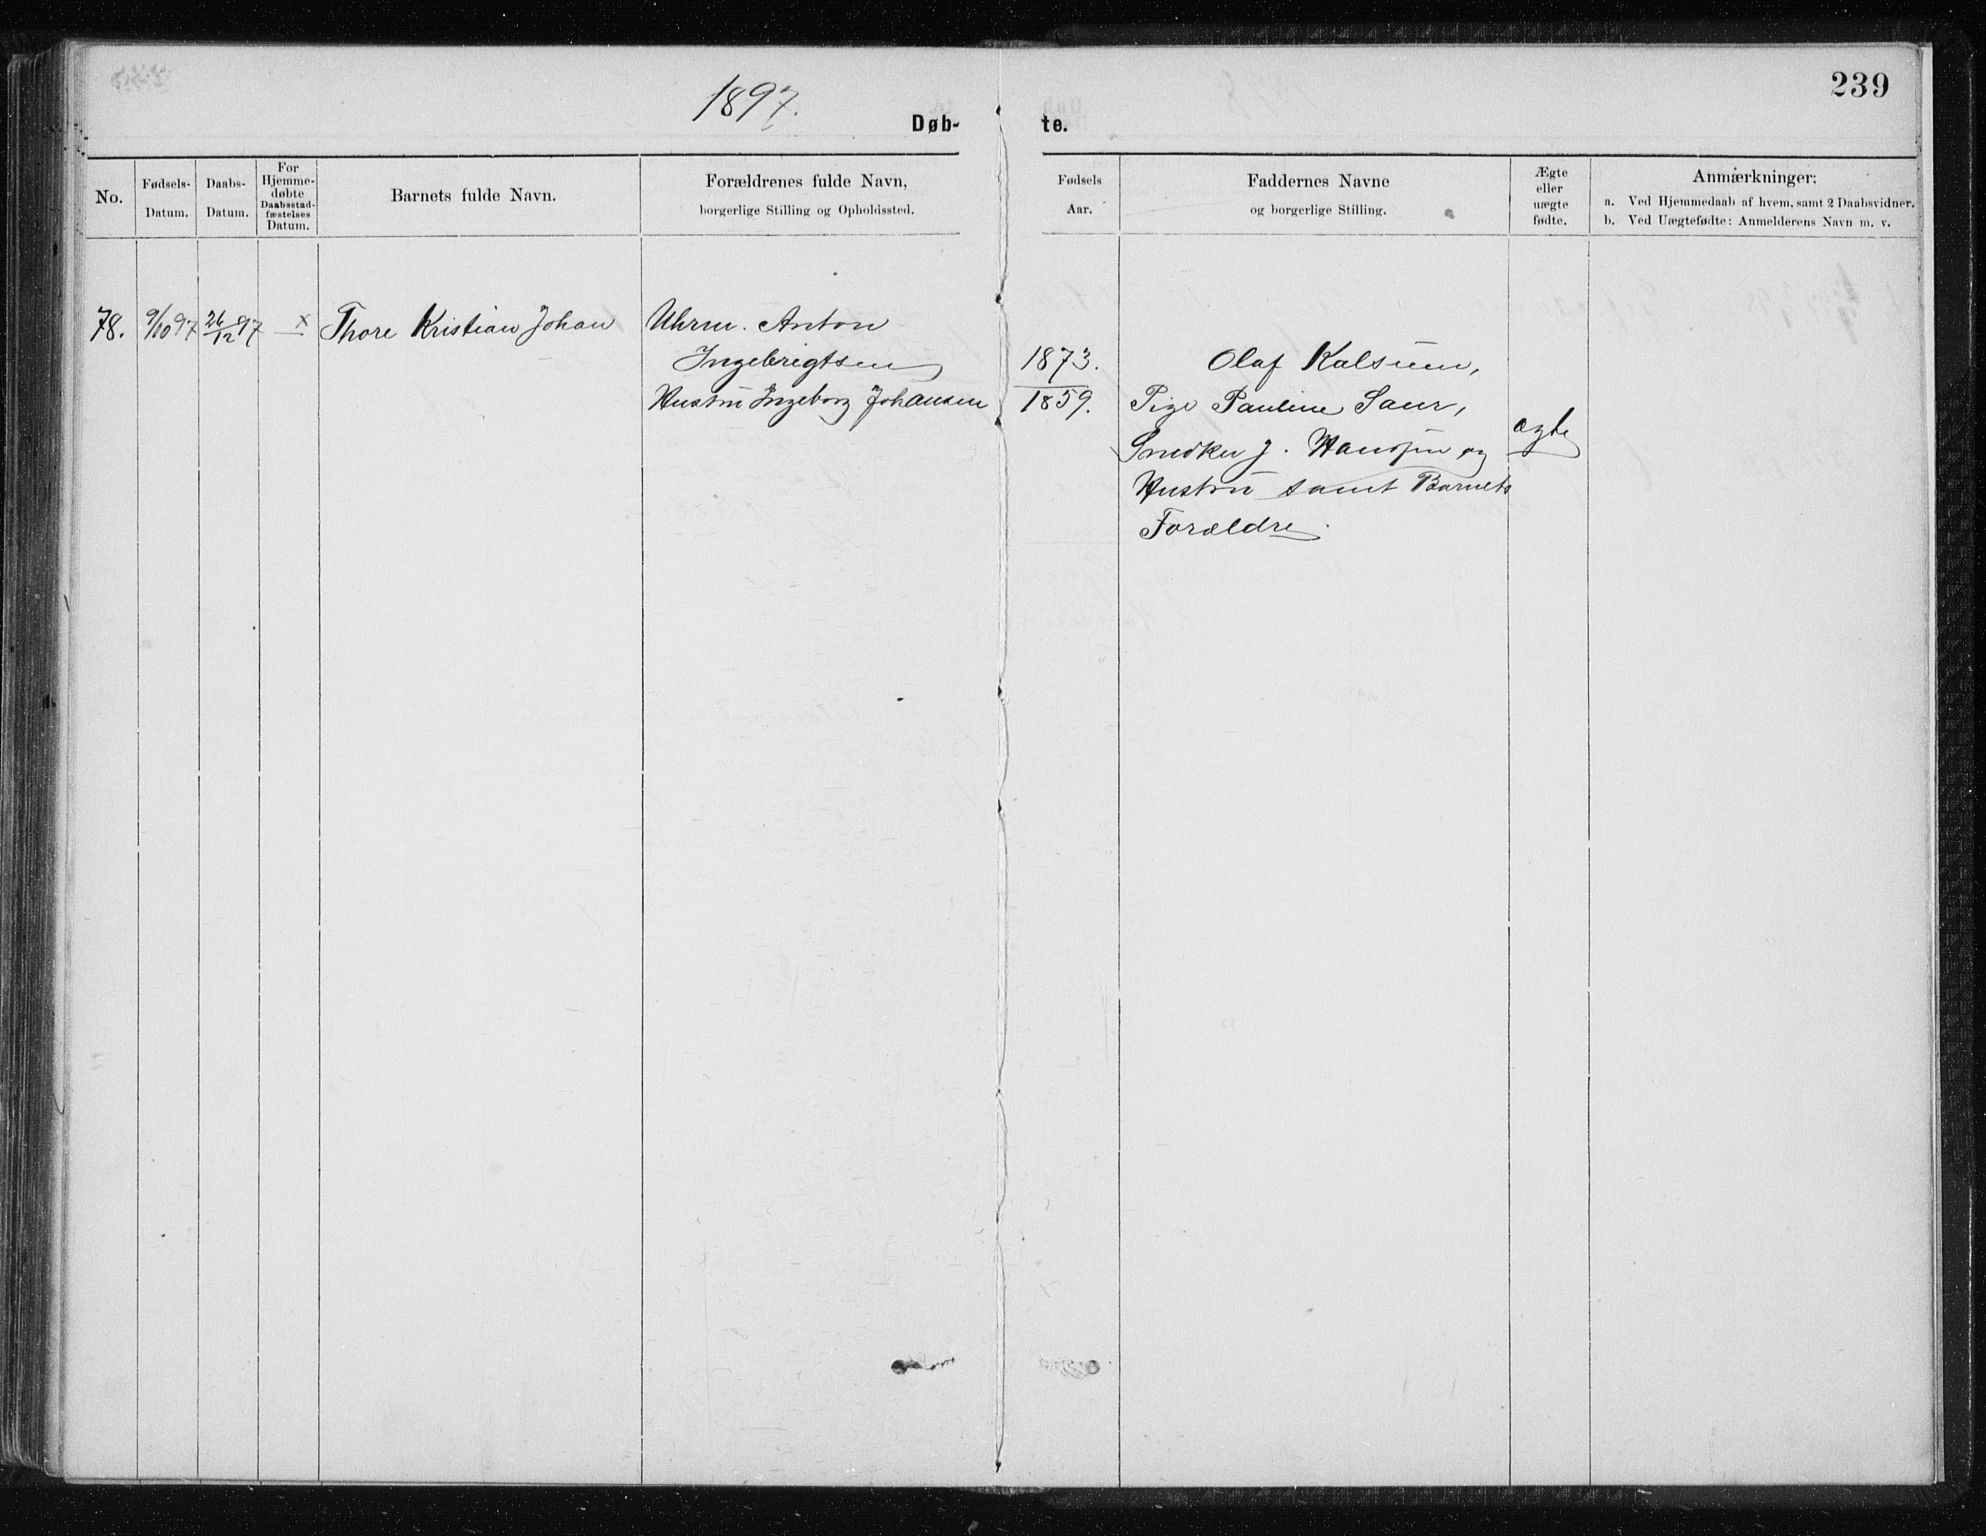 239
1897.
Døb- te.
No.
Fødsels-
Datum.
Daabs-
Datum.
For
Hjemme-
døbte
Daabsstad-
fæstelses
Datum.
Barnets fulde Navn.
Forældrenes fulde Navn,
borgerlige Stilling og Opholdssted.
Fødsels
Aar.
Faddernes Navne
og borgerlige Stilling.
Ægte
eller
uægte
fødte.
Anmærkninger:
a. Ved Hjemmedaab af hvem, samt 2 Daabsvidner.
b. Ved Uægtefødte: Anmelderens Navn m. v.
78. 9/10 97 26/12 97 x Thore Kristian Johan
Uhrm. Anton
Ingebrigtsen
Hustru Ingeborg Johansen
1873.
1859.
Olaf Kalsuem,
Pige Pauline Saur,
Snedker J. Hansen og
Hustru samt Barnets
Forældre.
ægte